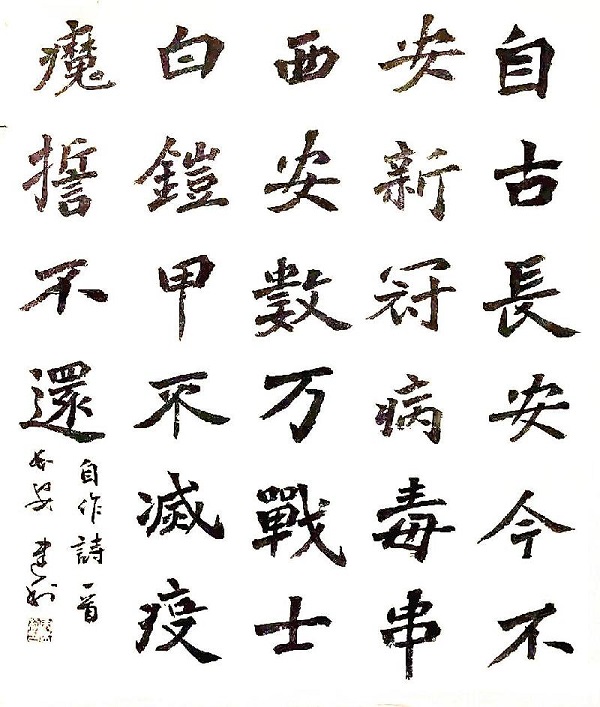 自古長安今不
安新冠病毒串
西安數万戰士
白鎧甲不滅疫
魔誓不還
自作詩一首
长安 建